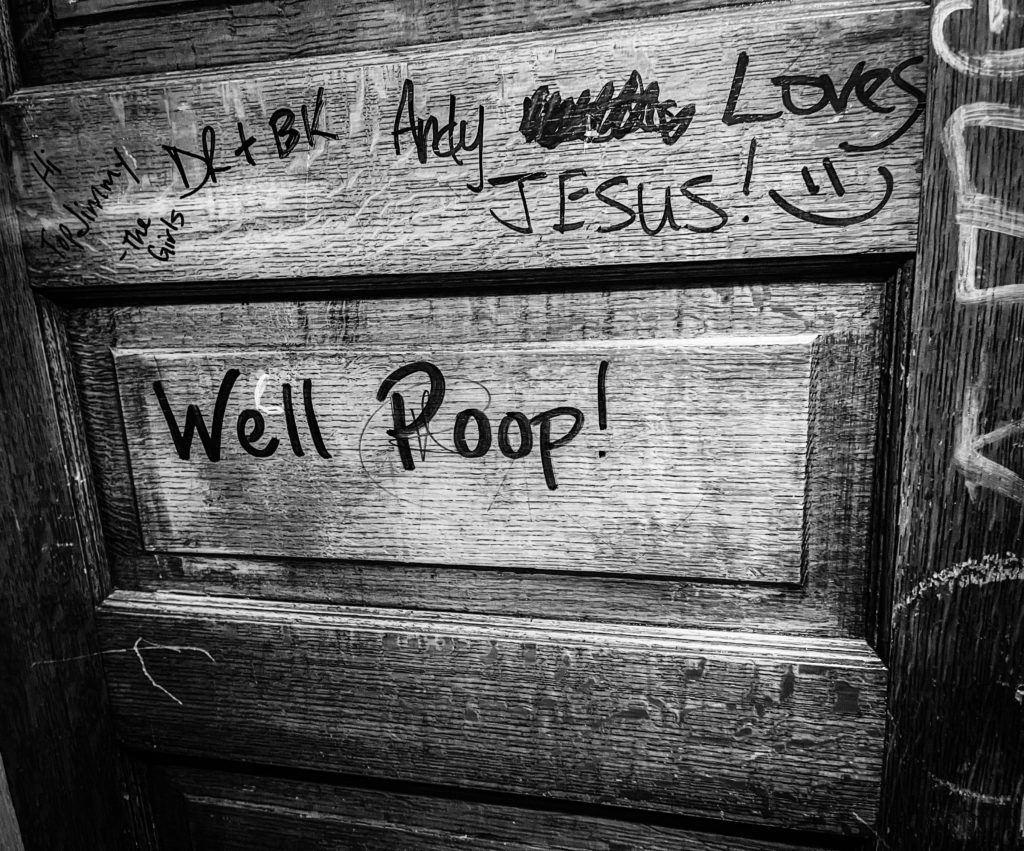 Hi
Top Jimmy
-The
Girls
DR + BK
Andy Loves
JESUS!
Well Poop!